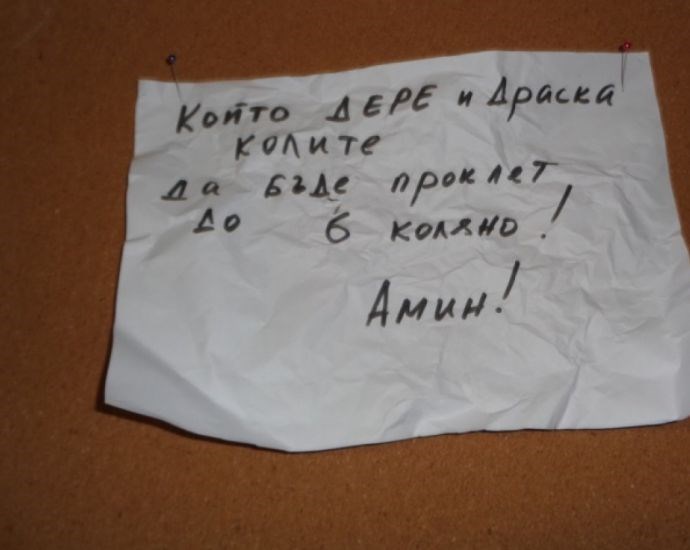 Който ДЕРЕ и Драска
колите
да бъде проклет
до 6 коляно!
Амин!